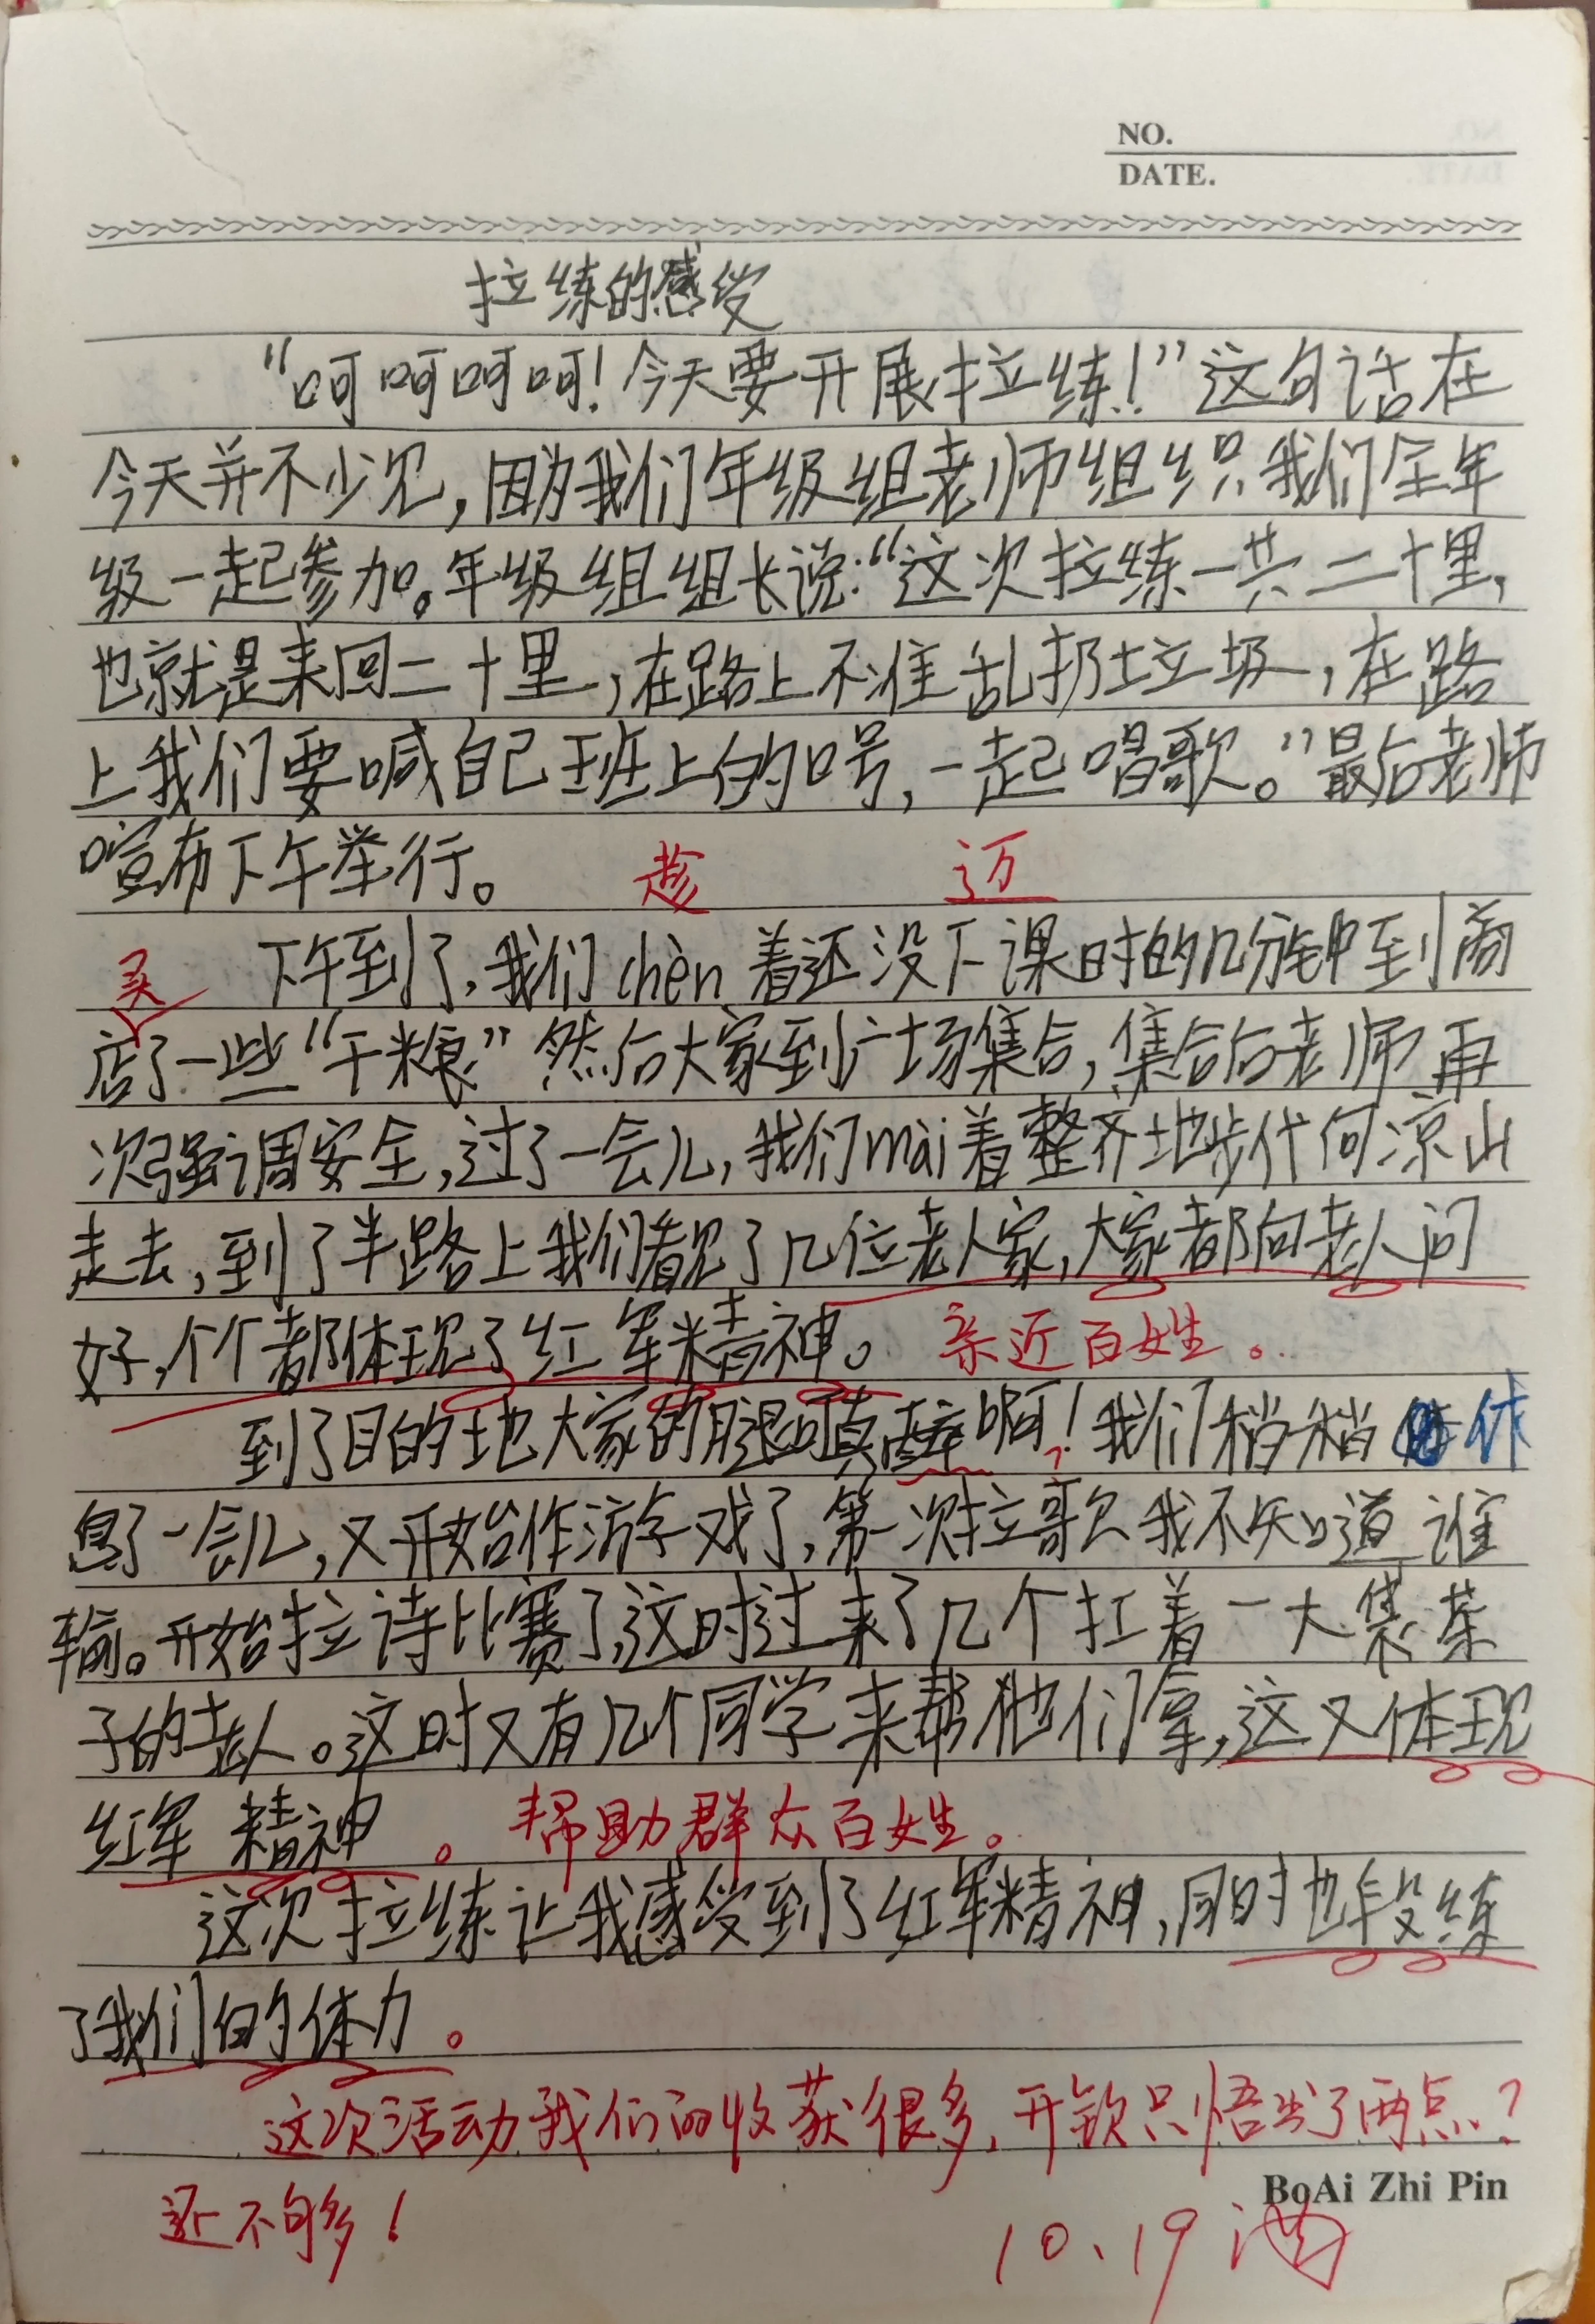 NO.
DATE.
拉练的感受
“呵呵呵呵！今天要开展拉练！”这句话在
今天并不少见，因为我们年级组老师组织我们全年
级一起参加。年级组组长说：“这次拉练一共二十里，
也就是来回二十里，在路上不准乱扔垃圾，在路
上我们要喊自己班上的口号，一起唱歌。”最后老师
喧布下午举行。
趁 迈
下午到了，我们chèn着还没下课时的几分钟到商
买
店了一些“干粮”然后大家到广场集合，集合后老师再
次强调安全，过了一会儿，我们mài着整齐地步代向凉山
走去，到了半路上我们看见了几位老人家，大家都向老人问
好，个个都体现了红军精神。 亲近百姓。
到了目的地大家的腿可真酸啊！我们稍稍休
息了一会儿，又开始作游戏了，第一次拉歌我不知道谁
输。开始拉诗比赛了，这时过来了几个扛着一大袋菜
子的老人。这时又有几个同学来帮他们拿，这又体现
红军精神。 帮助群众百姓。
这次拉练让我感受到了红军精神，同时也段练
了我们的体力。
这次活动我们的收获很多，开钦只悟出了两点？
还不够多！
BoAi Zhi Pin
10、19